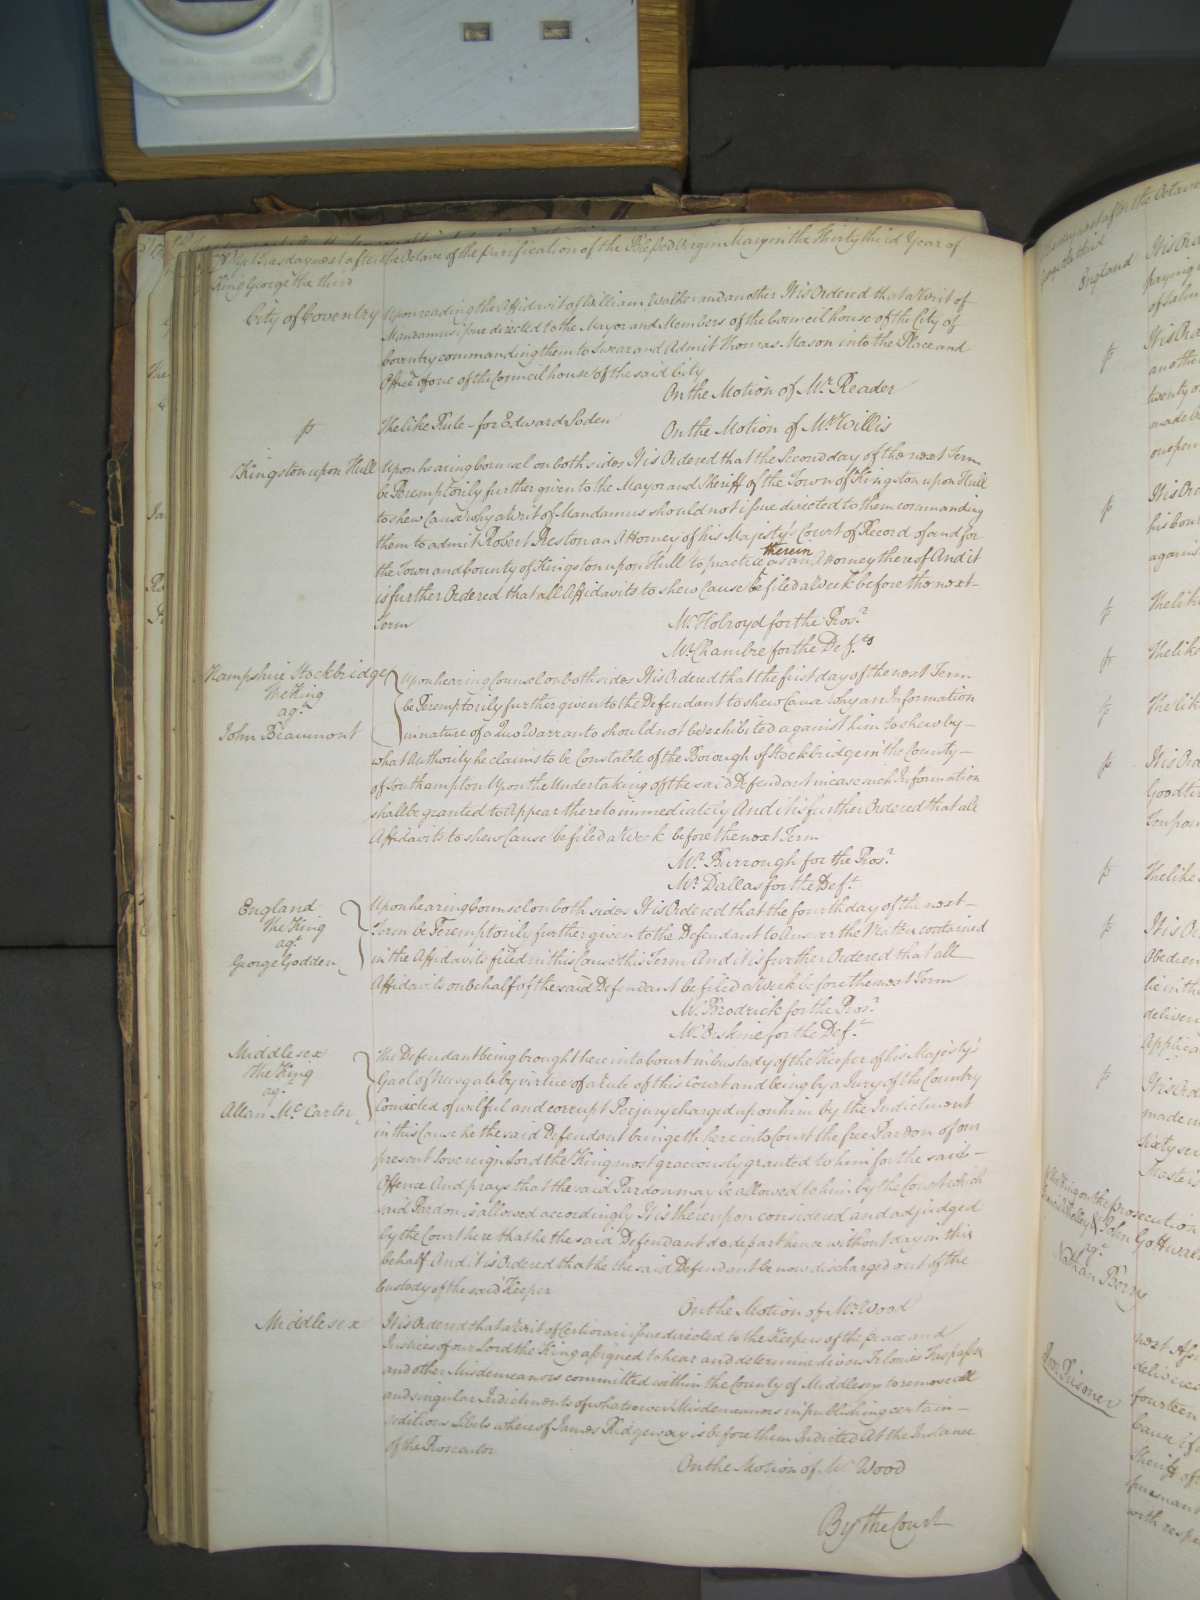 Tuesday next after the Octave of the Purification of the Blessed Virgin Mary in the Thirty third Year of
King George the third
City of Coventry Upon reading the Affidavit of William Walker and another It is Ordered that a Writ of
Mandamus issue directed to the Mayor and Members of the Council house of the City of
Coventry commanding them to Swear and Admit Thomas Mason into the Place and
Office of one of the Council house of the said City
On the Motion of Mr. Reader
The like Rule - for Edward Soden
On the Motion of Mr. Willis
Kingston upon Hull Upon hearing Counsel on both sides It is Ordered that the Second day of the next Term
be Peremptorily further given to the Mayor and Sheriff of the Town of Kingston upon Hull
to shew Cause why a Writ of Mandamus should not issue directed to them commanding
them to admit Robert Preston an Attorney of his Majesty's Court of Record of and for
therein
the Town and County of Kingston upon Hull to practice as an Attorney thereof And it
is further Ordered that all Affidavits to shew Cause be filed a Week before the next
Term
Mr. Holroyd for the Pros.r
Mr. Chambre for the Def.ts
Hampshire Stockbridge
The King
agt
John Beaumont
Upon hearing Counsel on both sides It is Ordered that the first day of the next Term
be Peremptorily further given to the Defendant to shew Cause why an Information
in nature of a Quo Warranto should not be exhibited against him to shew by
what Authority he claims to be Constable of the Borough of Stockbridge in the County
of Southampton Upon the Undertaking of the said Defendant in case such Information
shall be granted to Appear thereto immediately And it is further Ordered that all
Affidavits to shew Cause be filed a Week before the next Term
Mr. Burrough for the Pros.r
Mr. Dallas for the Def.t
England
The King
agt
George Godden
Upon hearing Counsel on both sides It is Ordered that the fourth day of the next
Term be Peremptorily further given to the Defendant to Answer the Matters contained
in the Affidavits filed in this Cause this Term And it is further Ordered that all
Affidavits on behalf of the said Defendant be filed a Week before the next Term
Mr. Brodrick for the Pros.r
Mr. Erskine for the Def.t
Middlesex
The King
agt
Allan Mc Carter
The Defendant being brought here into Court in custody of the Keeper of his Majesty's
Gaol of Newgate by virtue of a Rule of this Court and being by a Jury of the Country
Convicted of wilful and corrupt Perjury charged upon him by the Indictment
in this Cause he the said Defendant bringeth here into Court the free Pardon of our
present Sovereign Lord the King most graciously granted to him for the said
Offence And prays that the said Pardon may be allowed to him by the Court which
said Pardon is allowed accordingly It is thereupon considered and adjudged
by the Court here that he the said Defendant do depart hence without day in this
behalf And it is Ordered that he the said Defendant be now discharged out of the
Custody of the said Keeper
On the Motion of Mr. Wood
Middlesex It is Ordered that a Writ of Certiorari issue directed to the Keepers of the peace and
Justices of our Lord the King assigned to hear and determine divers Felonies Trespasses
and other Misdemeanors committed within the County of Middlesex to remove all
and singular Indictments of whatsoever Misdemeanors in publishing certain
seditious Libels whereof James Ridgeway is before them Indicted At the Instance
of the Prosecutor
On the Motion of Mr. Wood
By the Court
England
The like
The like
The like
The like
The King on the prosecution
John
agt
Nathan Berry
Prisoner